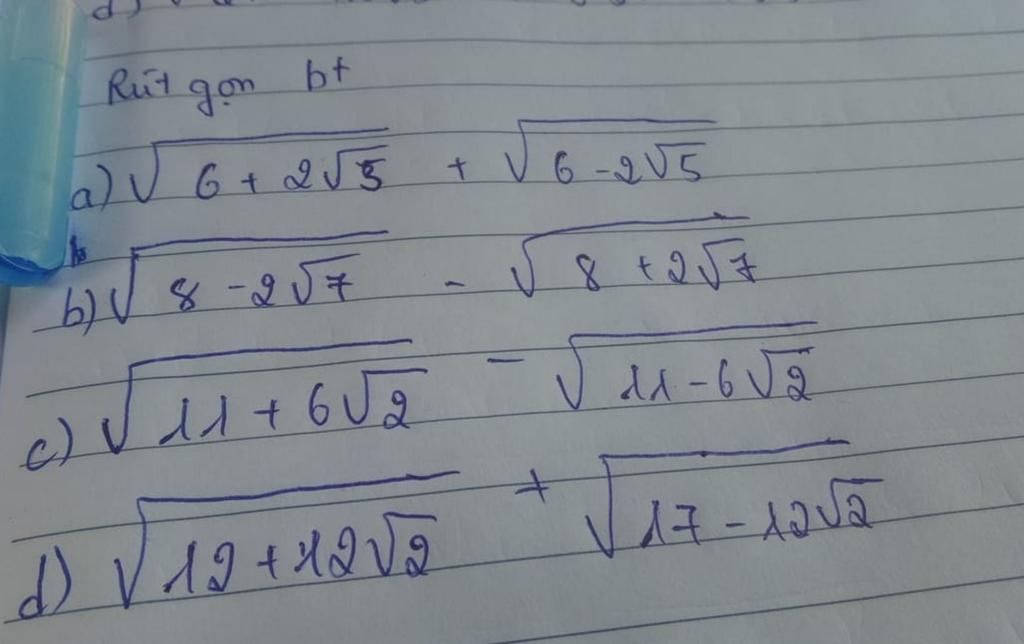 d)
Rút gọn bt
a) √(6 + 2√5) + √(6 - 2√5)
b) √(8 - 2√7) - √(8 + 2√7)
c) √(11 + 6√2) - √(11 - 6√2)
d) √(12 + 12√2) + √(17 - 12√2)